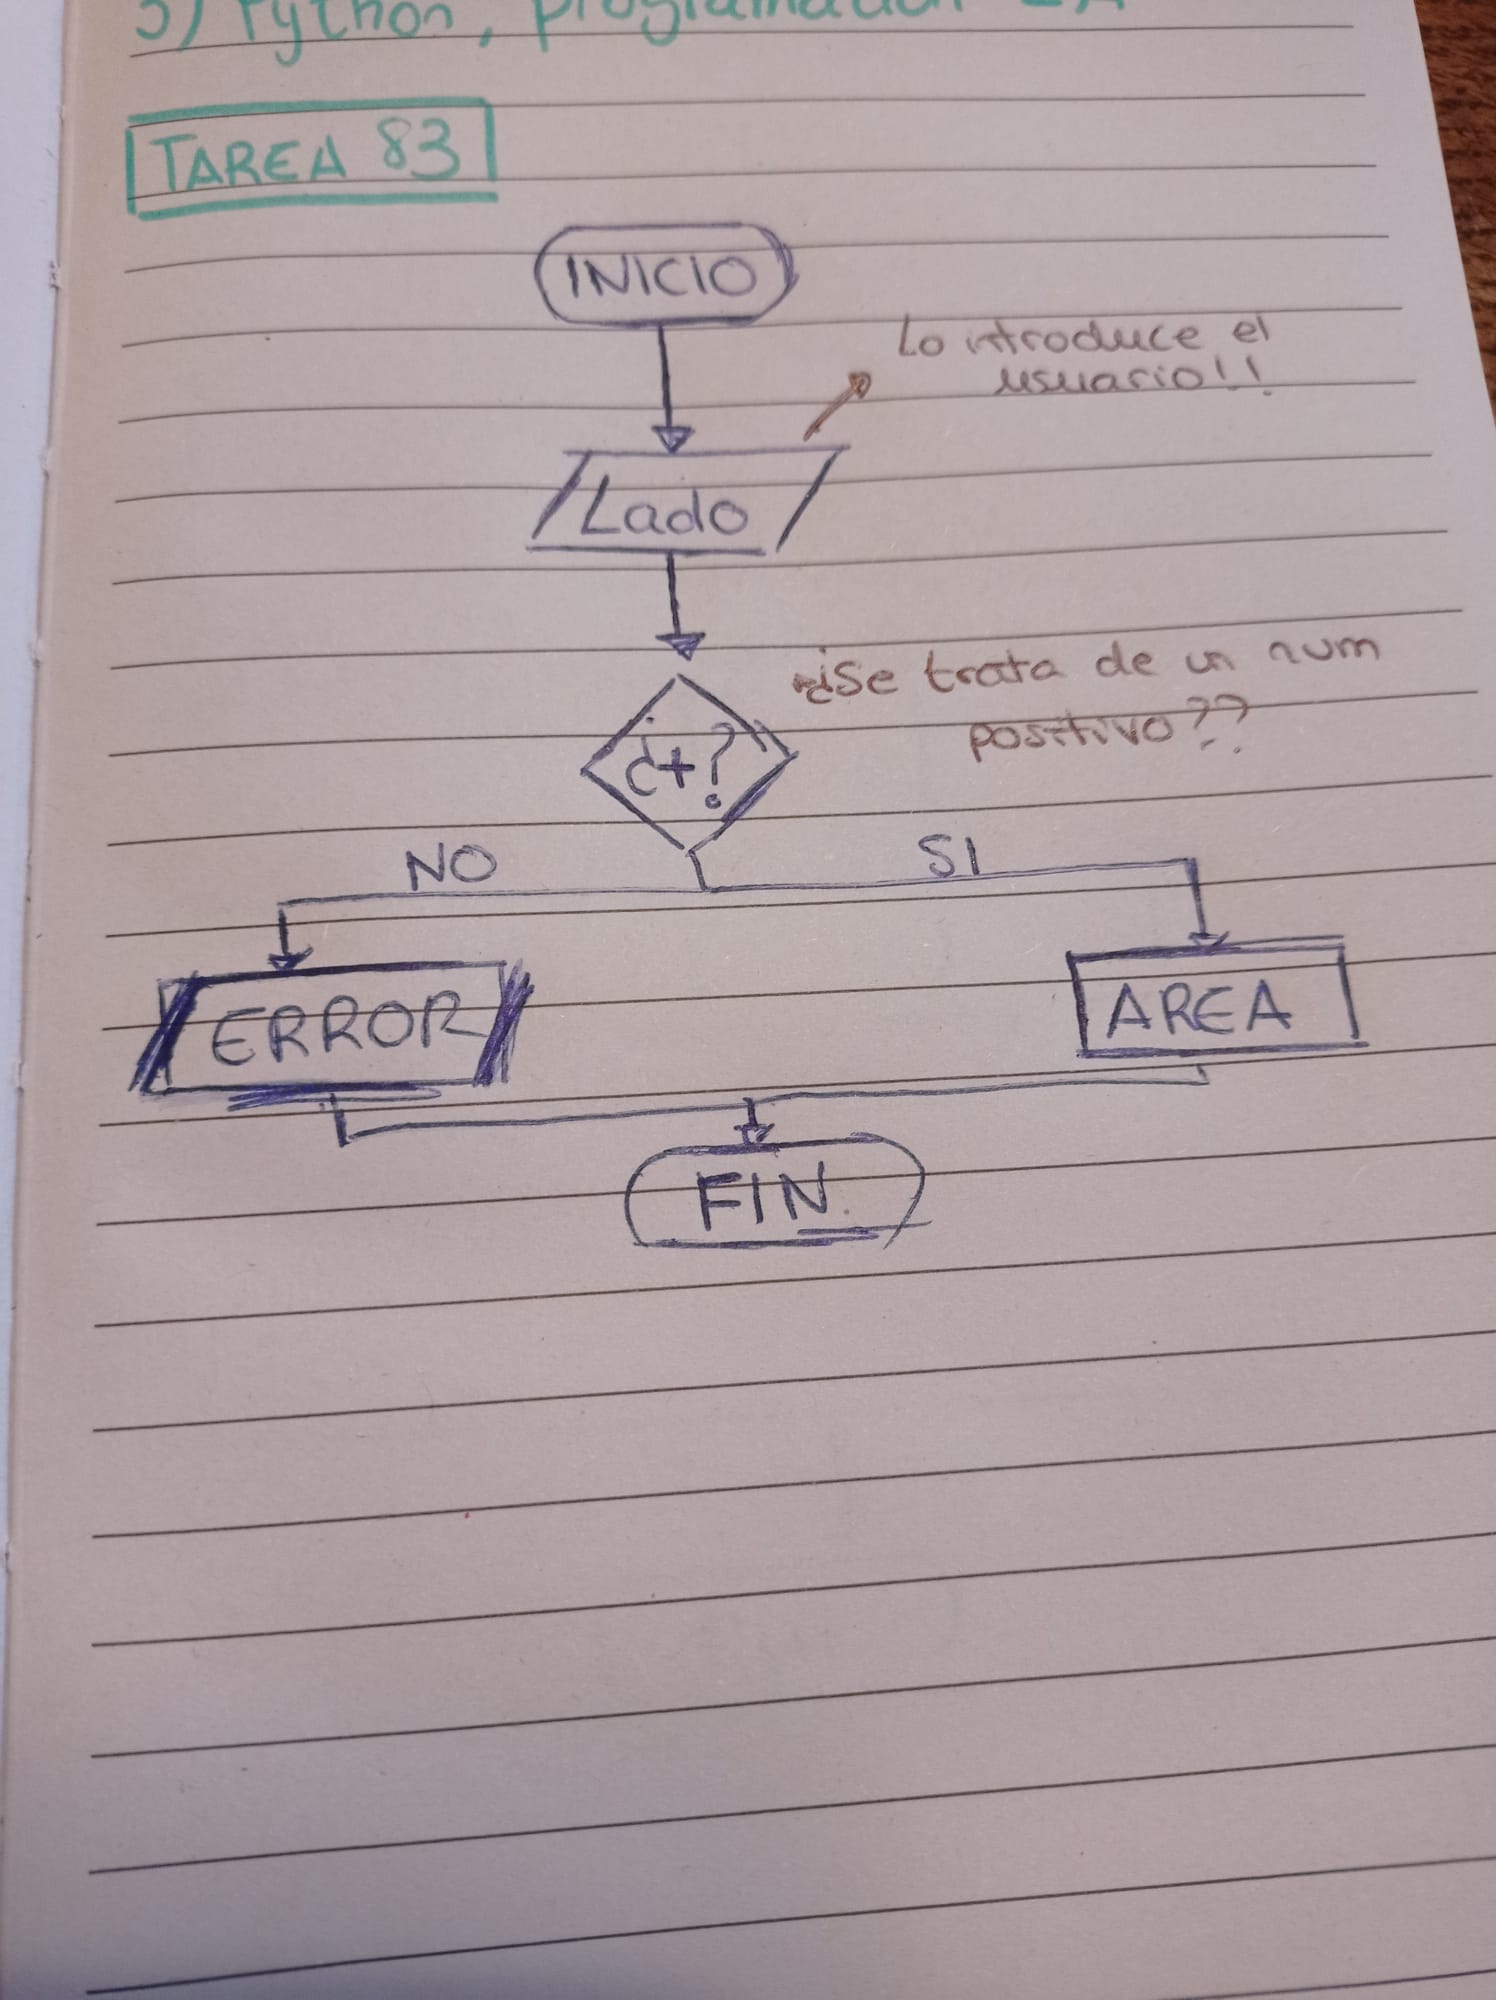 3) Python, programación
TAREA 83
INICIO
Lo introduce el
usuario!!
Lado
¿Se trata de un num
positivo??
¿+?
NO SI
ERROR AREA
FIN